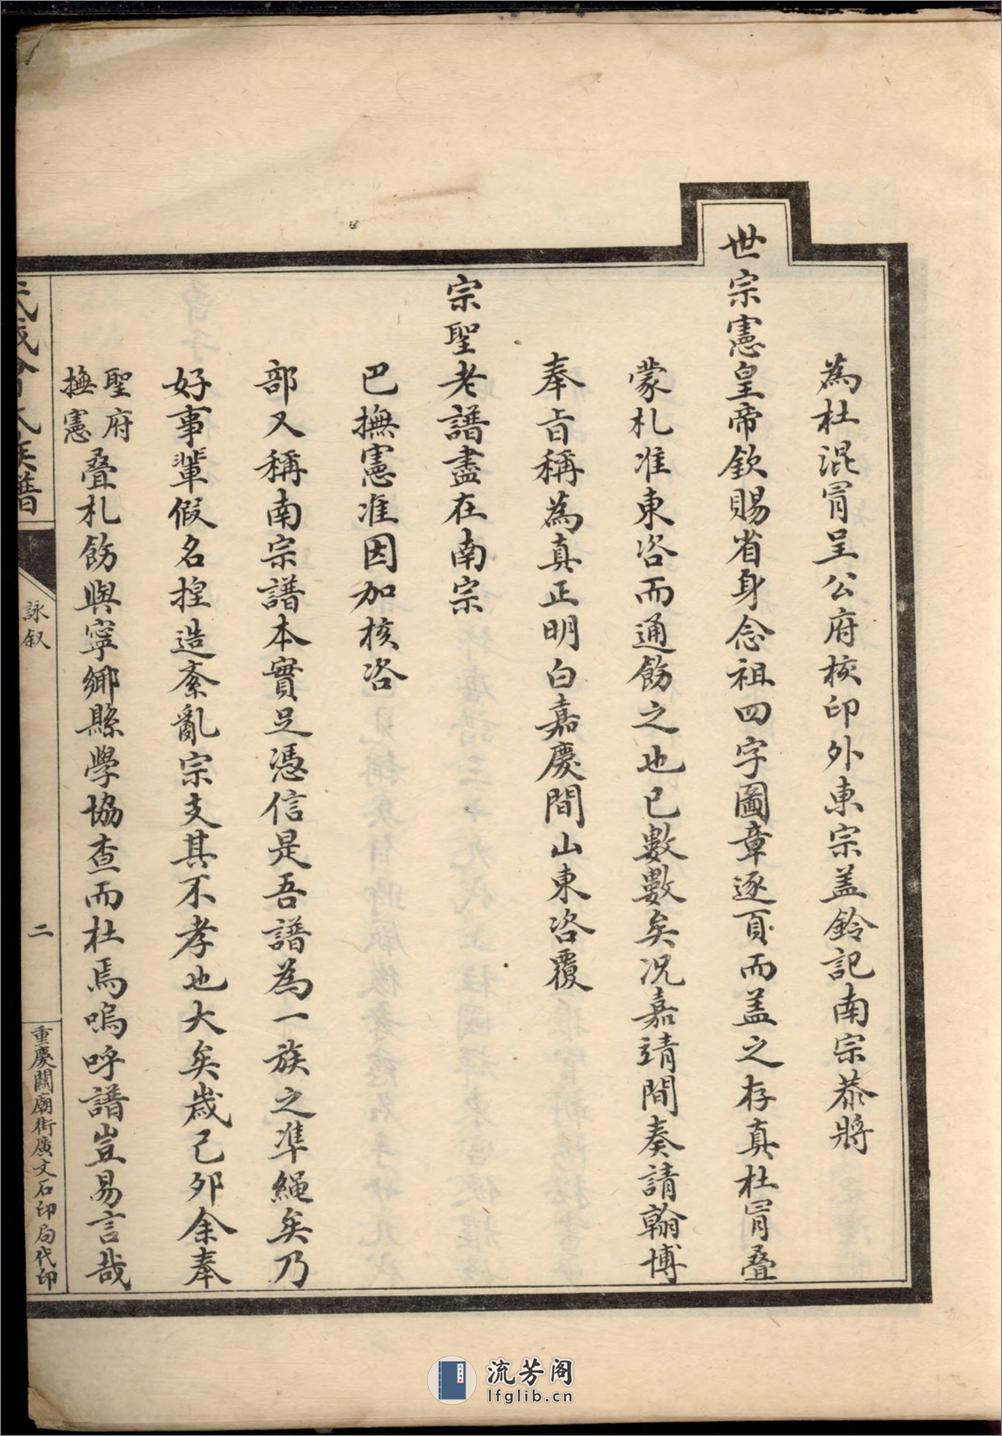 為杜混冐呈公府核印外東宗盖鈐記南宗恭將
世宗憲皇帝欽賜省身念祖四字圖章逐頁而盖之存真杜冐叠
蒙札准東咨而通飭之也已數數矣况嘉靖間奏請翰博
奉旨稱為真正明白嘉慶間山東咨覆
宗聖老譜盡在南宗
巴撫憲准因加核咨
部又稱南宗譜本實足憑信是吾譜為一族之凖繩矣乃
好事輩假名揑造紊亂宗支其不孝也大矣歲己卯余奉
聖府
撫憲
叠札飭與寧鄉縣學協查而杜焉嗚呼譜豈易言哉
武城曾氏族譜
詠叙
二
重慶關廟街廣文石印局代印
流芳阁
lfglib.cn